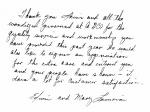 Thank you Kevin and all the
wonderful personnel at
for the quality service and workmanship you
have provided this past year. We would
also like to express our appreciation
for the extra care and concern you
and your people have shown - it
have a for customer satisfaction.
and Mary